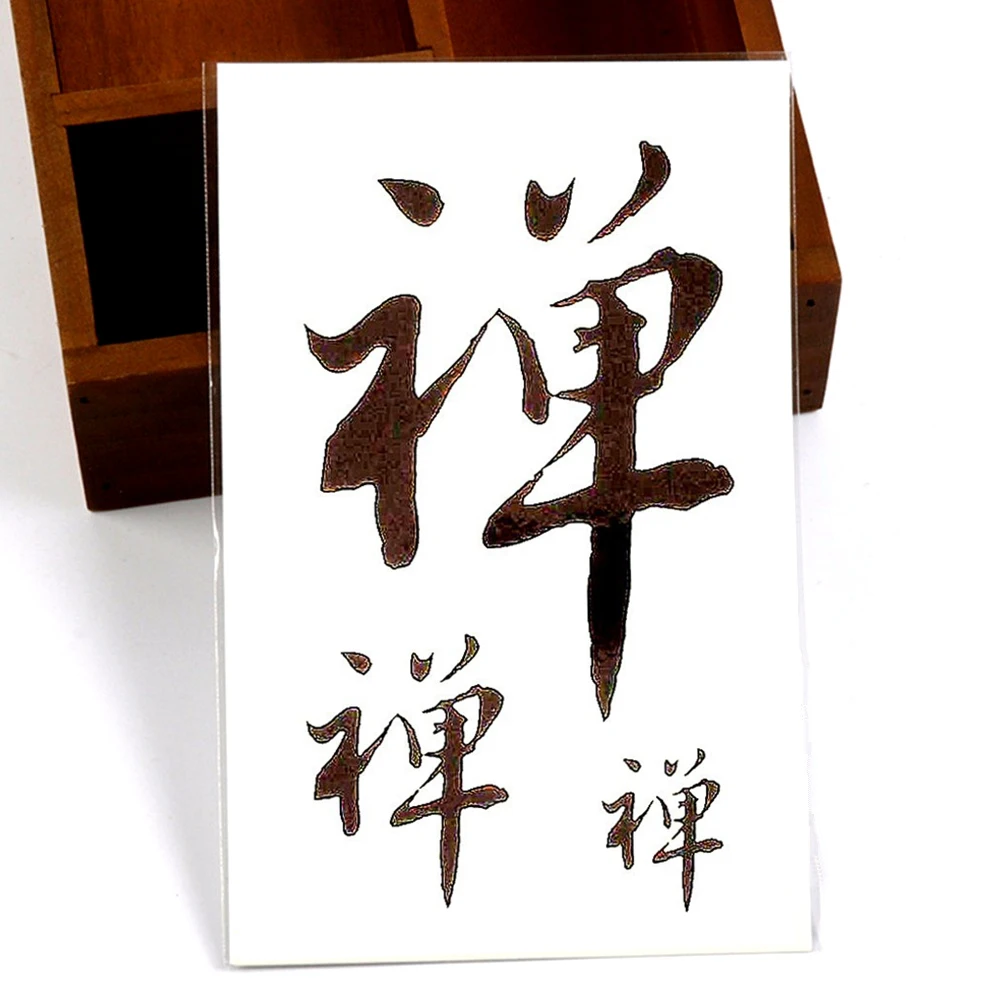 禅
禅 禅